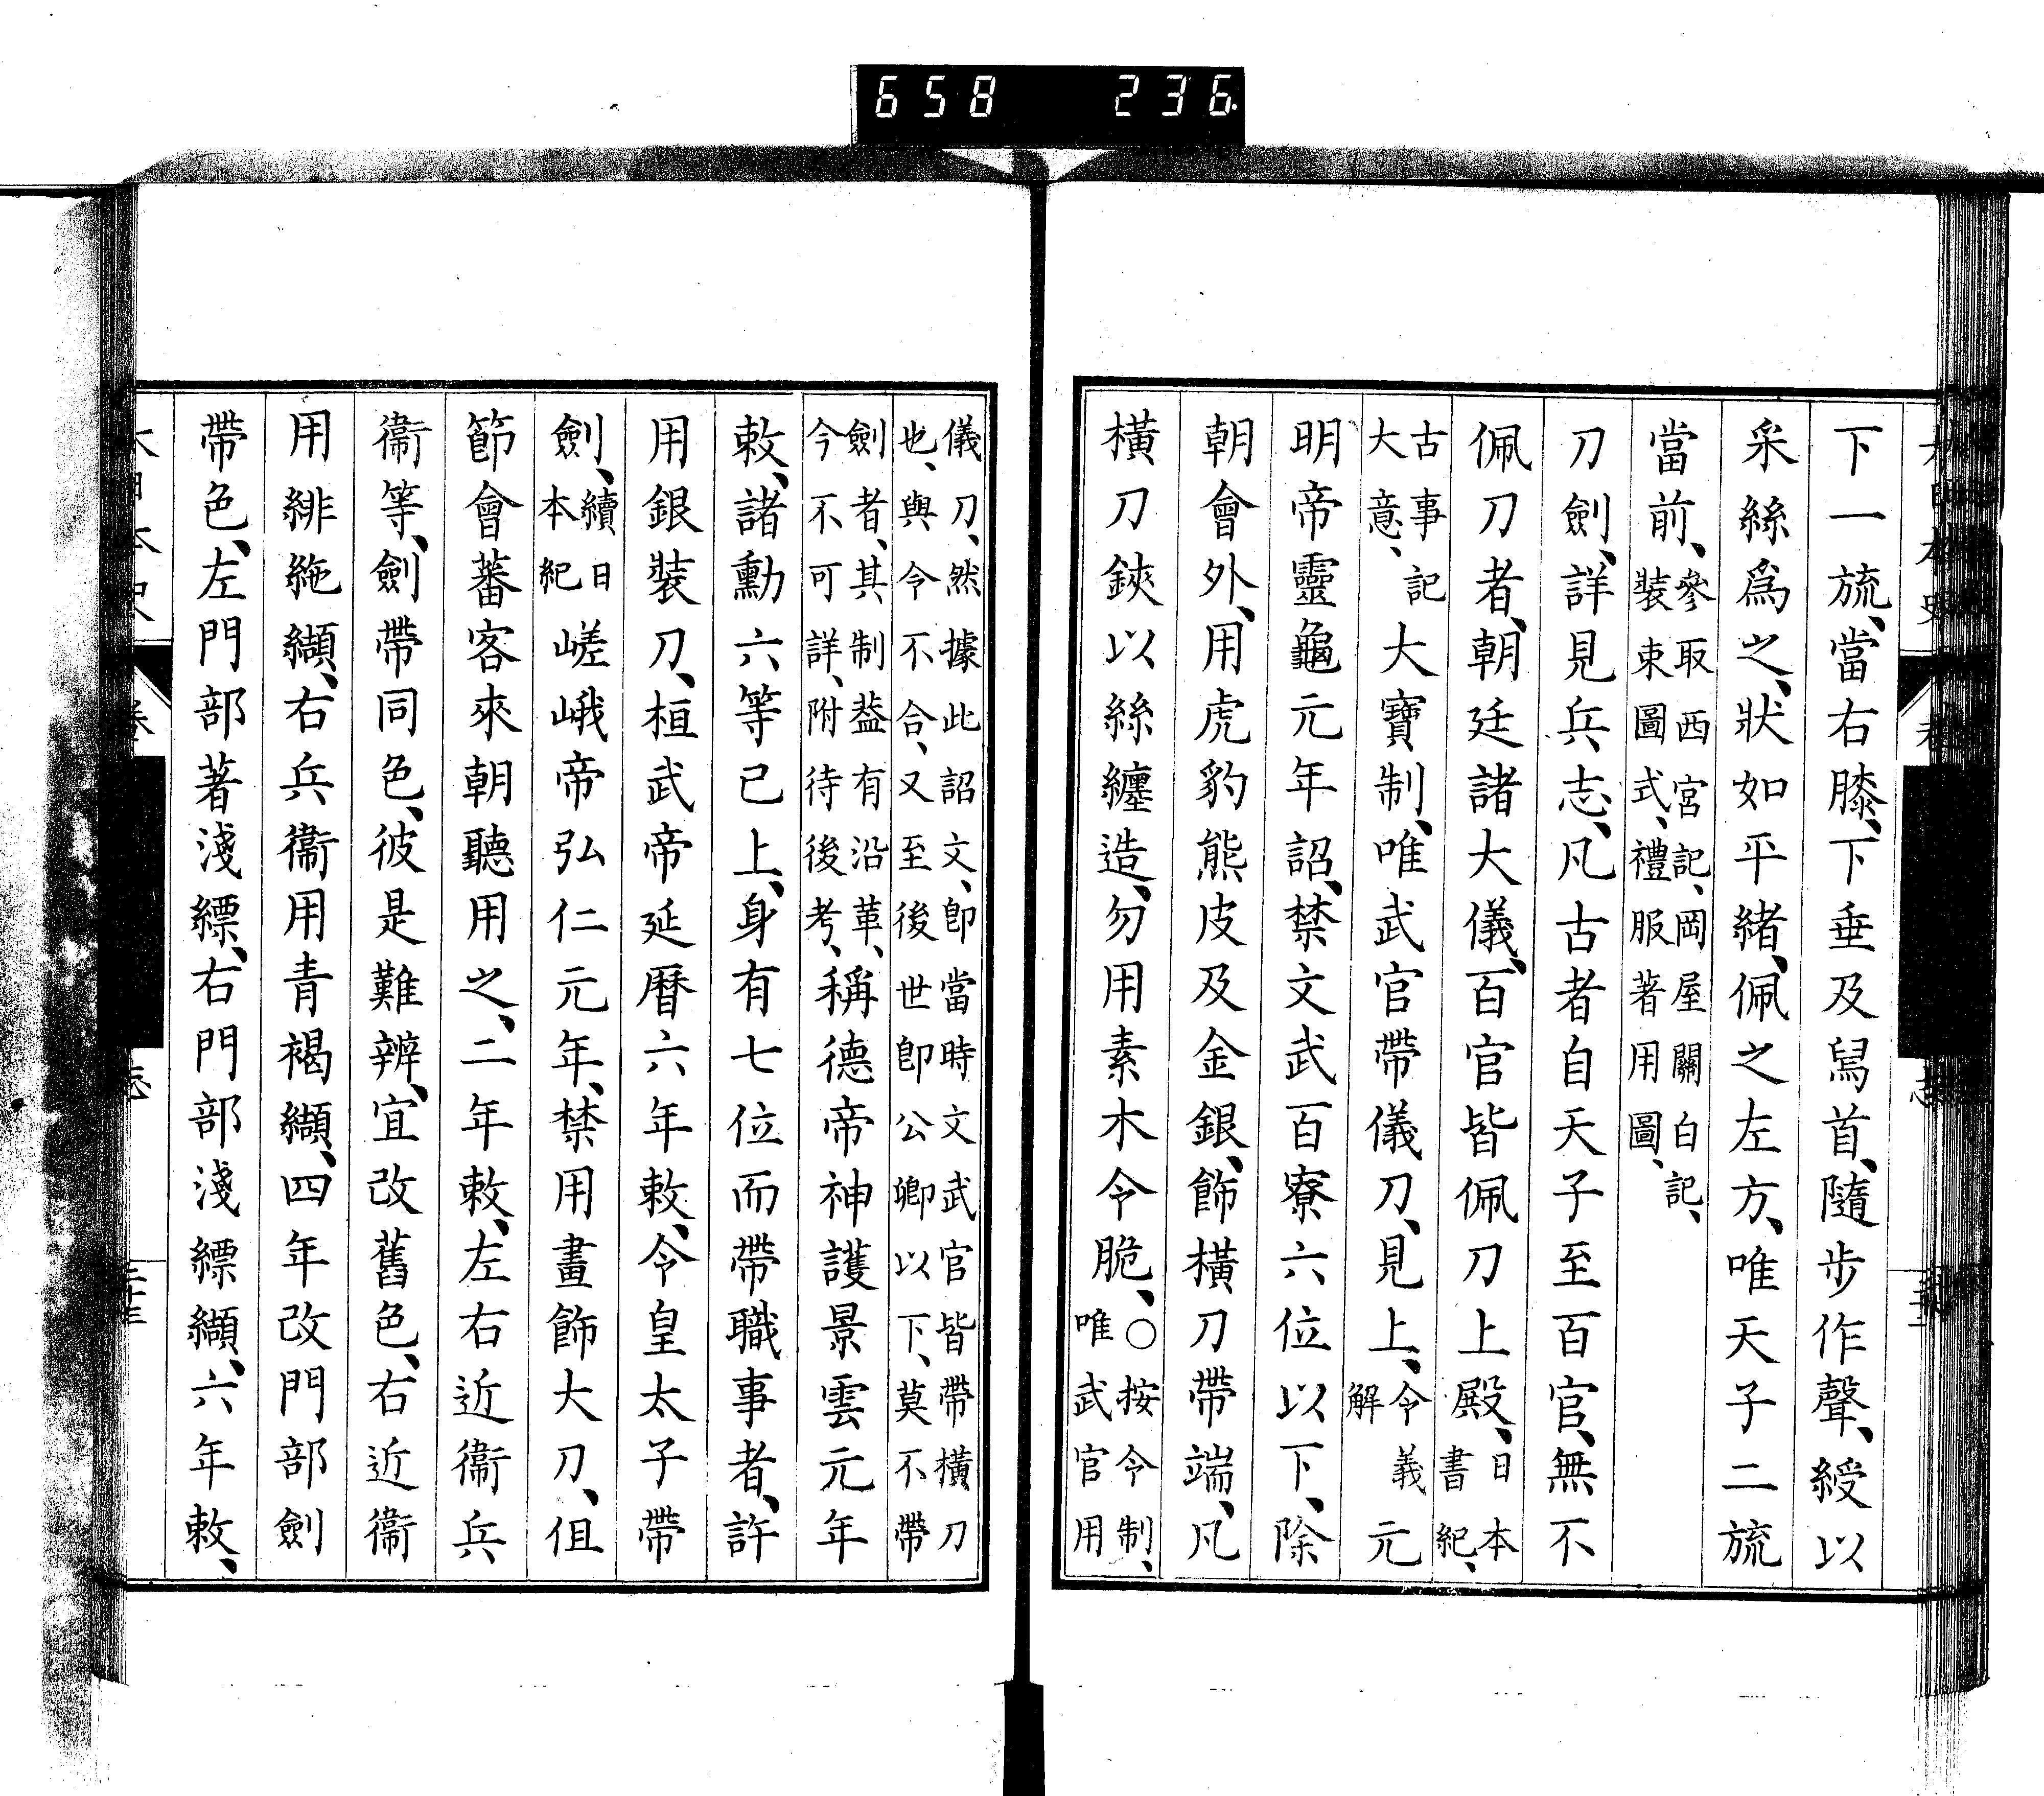 658 236
下一旒、當右膝、下垂及舄首、隨步作聲、綬以
采絲爲之、狀如平緒、佩之左方、唯天子二旒
當前、參取西宮記、岡屋關白記、裝束圖式、禮服著用圖、
刀劍、詳見兵志、凡古者自天子至百官、無不
佩刀者、朝廷諸大儀、百官皆佩刀上殿、日本書紀、
古事記大意、大寶制、唯武官帶儀刀、見上、令義解元
明帝靈龜元年詔、禁文武百寮六位以下、除
朝會外、用虎豹熊皮及金銀、飾横刀帶端、凡
横刀鋏以絲纏造、勿用素木令脆、○按令制、唯武官用
儀刀、然據此詔文、卽當時文武官皆帶横刀也、與令不合、又至後世卽公卿以下、莫不帶
劍者、其制蓋有沿革、今不可詳、附待後考、稱德帝神護景雲元年
敕、諸勳六等已上、身有七位而帶職事者、許
用銀裝刀、桓武帝延曆六年敕、令皇太子帶
劍、續日本紀嵯峨帝弘仁元年、禁用畫飾大刀、但
節會蕃客來朝聽用之、二年敕、左右近衞兵
衞等、劍帶同色、彼是難辨、宜改舊色、右近衞
用緋絁纈、右兵衞用青褐纈、四年改門部劍
帶色、左門部著淺縹、右門部淺縹纈、六年敕、